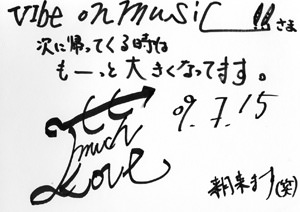 vibe on music !! さま
次に帰ってくる時は
もーっと大きくなってます。
09.7.15
much
Love
来ます(笑)